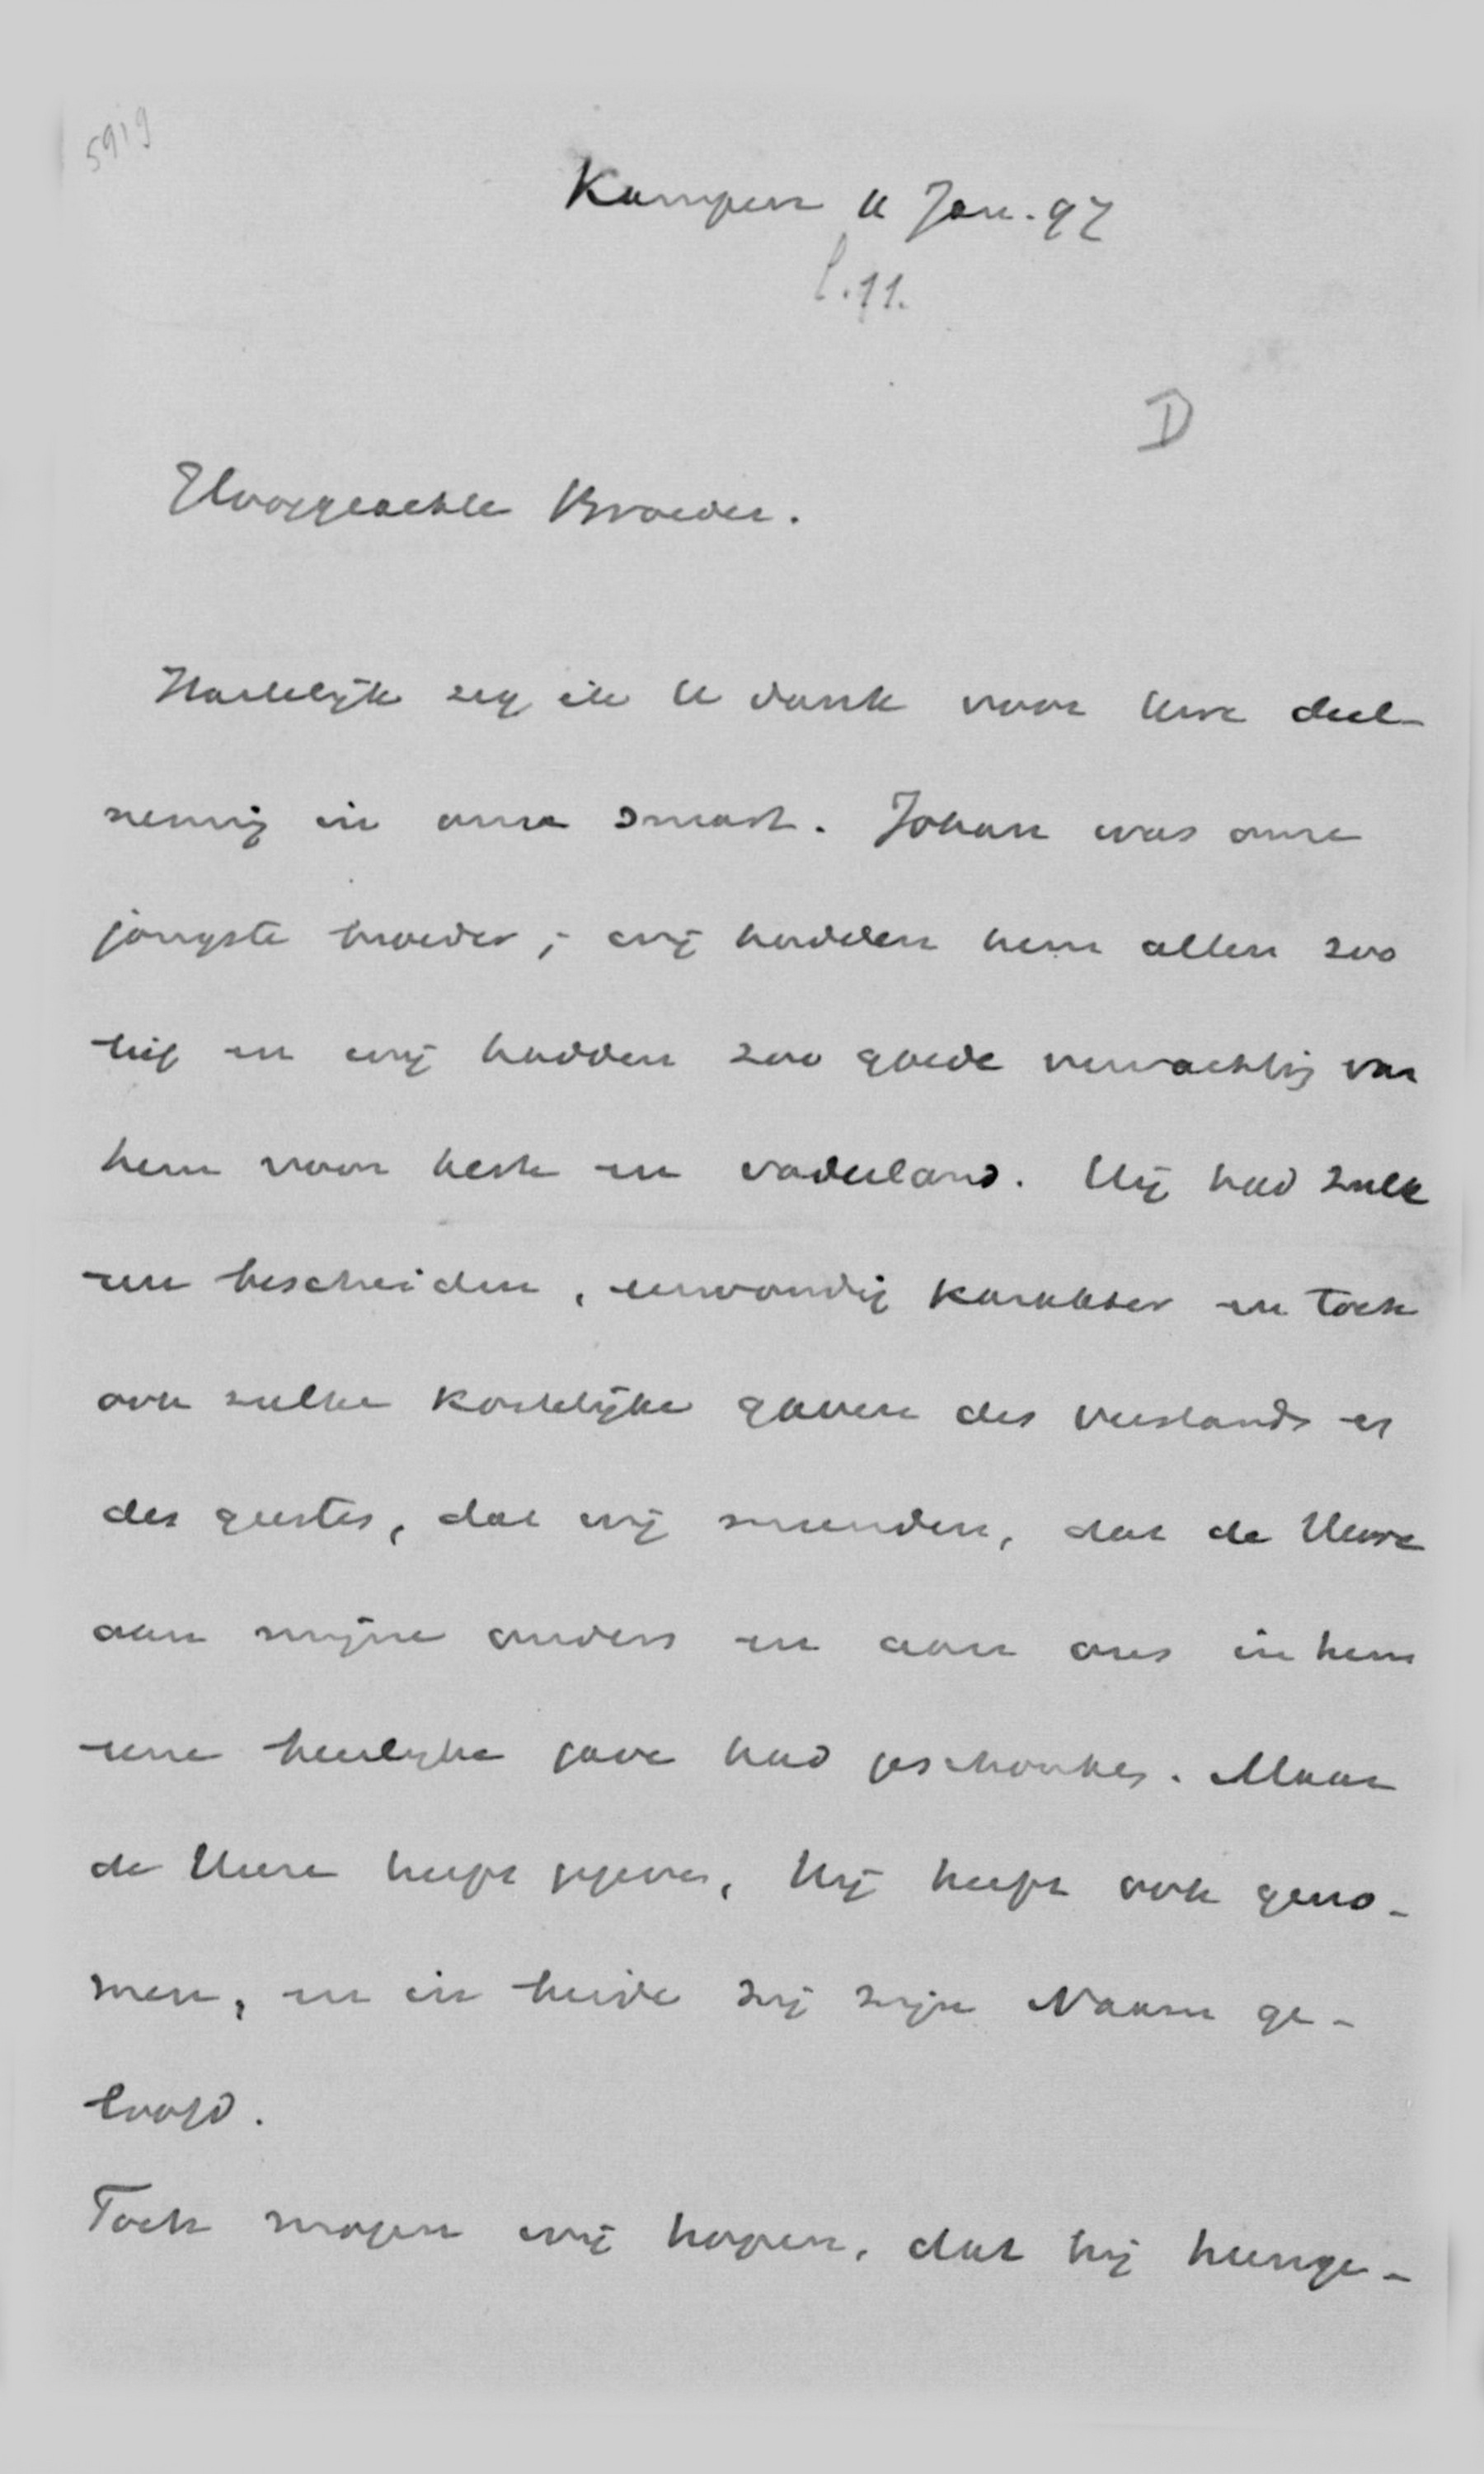 5919
Kampen 11 Jan. 97
l. 11.
D
Hooggeachte Broeder.
Hartelijk zeg ik U dank voor Uwe deel-
neming in onze smart. Johan was onze
jongste broeder; wij hadden hem allen zoo
lief en wij hadden zoo goede verwachting van
hem voor kerk en vaderland. Hij had zulk
een bescheiden, eenvoudig karakter en toch
ook zulke kostelijke gaven des verstands en
des geestes, dat wij meenden, dat de Heere
aan mijne ouders en aan ons in hem
eene heerlijke gave had geschonken. Maar
de Heere heeft gegeven, Hij heeft ook geno-
men, en in beide zij zijn Naam ge-
loofd.
Toch mogen wij hopen, dat hij heenge-